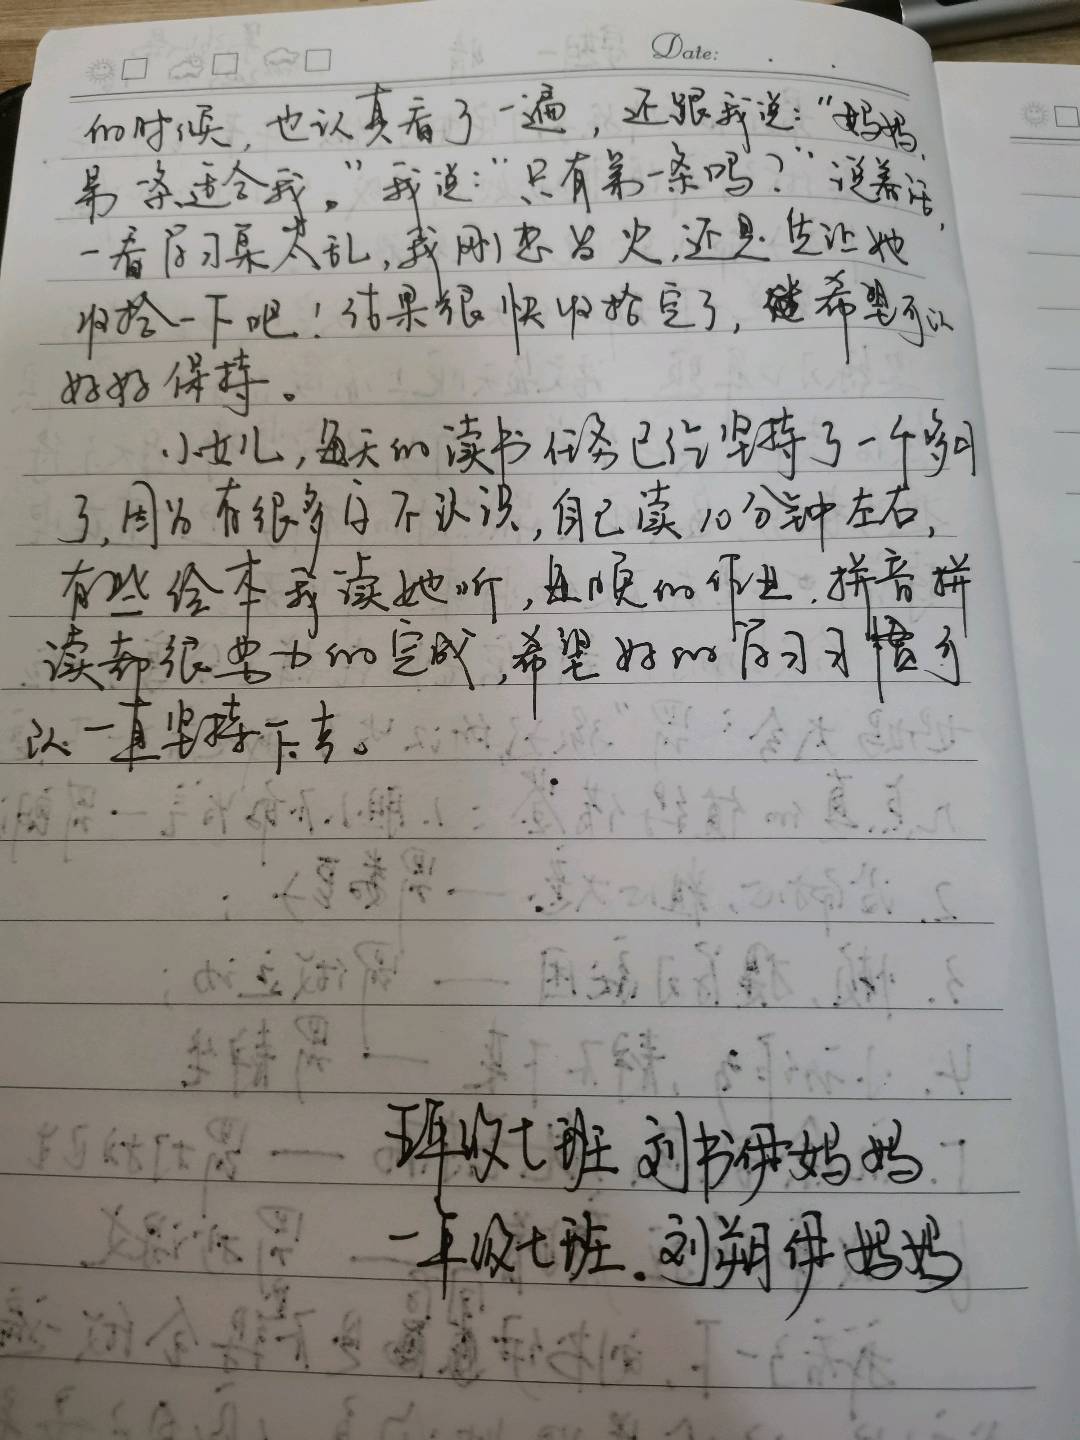 Date:
的时候，也认真看了一遍，还跟我说："妈妈，
第一条适合我。"我说："只有第一条吗？"说着话，
一看学习桌太乱，我刚想发火，还是先让她
收拾一下吧！结果很快收拾完了，希望可以
好好保持。
小女儿，每天的读书任务已经坚持了一个多月
了，因为有很多字不认识，自己读10分钟左右，
有些绘本我读她听，的作业，拼音拼
读都很努力的完成，希望好的学习习惯可
以一直坚持下去。
五年级七班 刘书伊妈妈
一年级七班．刘朔伊妈妈